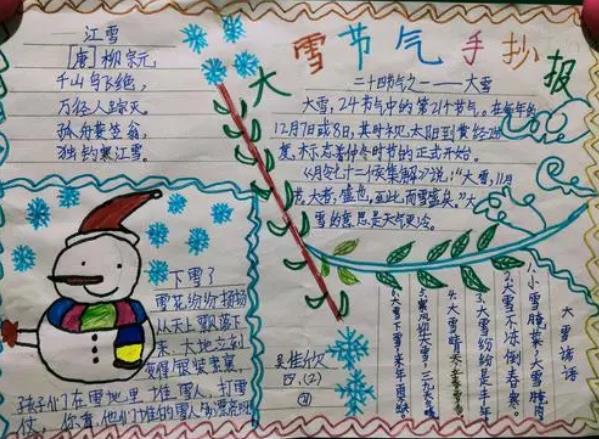 大雪节气手抄报
江雪
[唐] 柳宗元
千山鸟飞绝,
万径人踪灭。
孤舟蓑笠翁,
独钓寒江雪。
二十四节气之一——大雪
大雪,24节气中的第21个节气。在每年的
12月7日或8日,其时视太阳到黄经
度。标志着仲冬时节的正式开始。
《月令七十二候集解》说:“大雪,11月
大者,盛也,至此而雪盛矣。”大
雪的意思是天气更冷。
下雪了
雪花纷纷扬扬
从天上飘落下
来,大地立刻
变得银装素裹,
孩子们在雪地里堆雪人,打雪
仗,你看,他们堆的雪人
大雪谚语
1.小雪腌菜,大雪腌肉
2.大雪不冻倒春寒。
3.大雪纷纷是丰年
4.大雪晴天
5.寒风迎大雪,三九天气暖
6.大雪下雪来年雨
吴佳欣
四.(2)
21